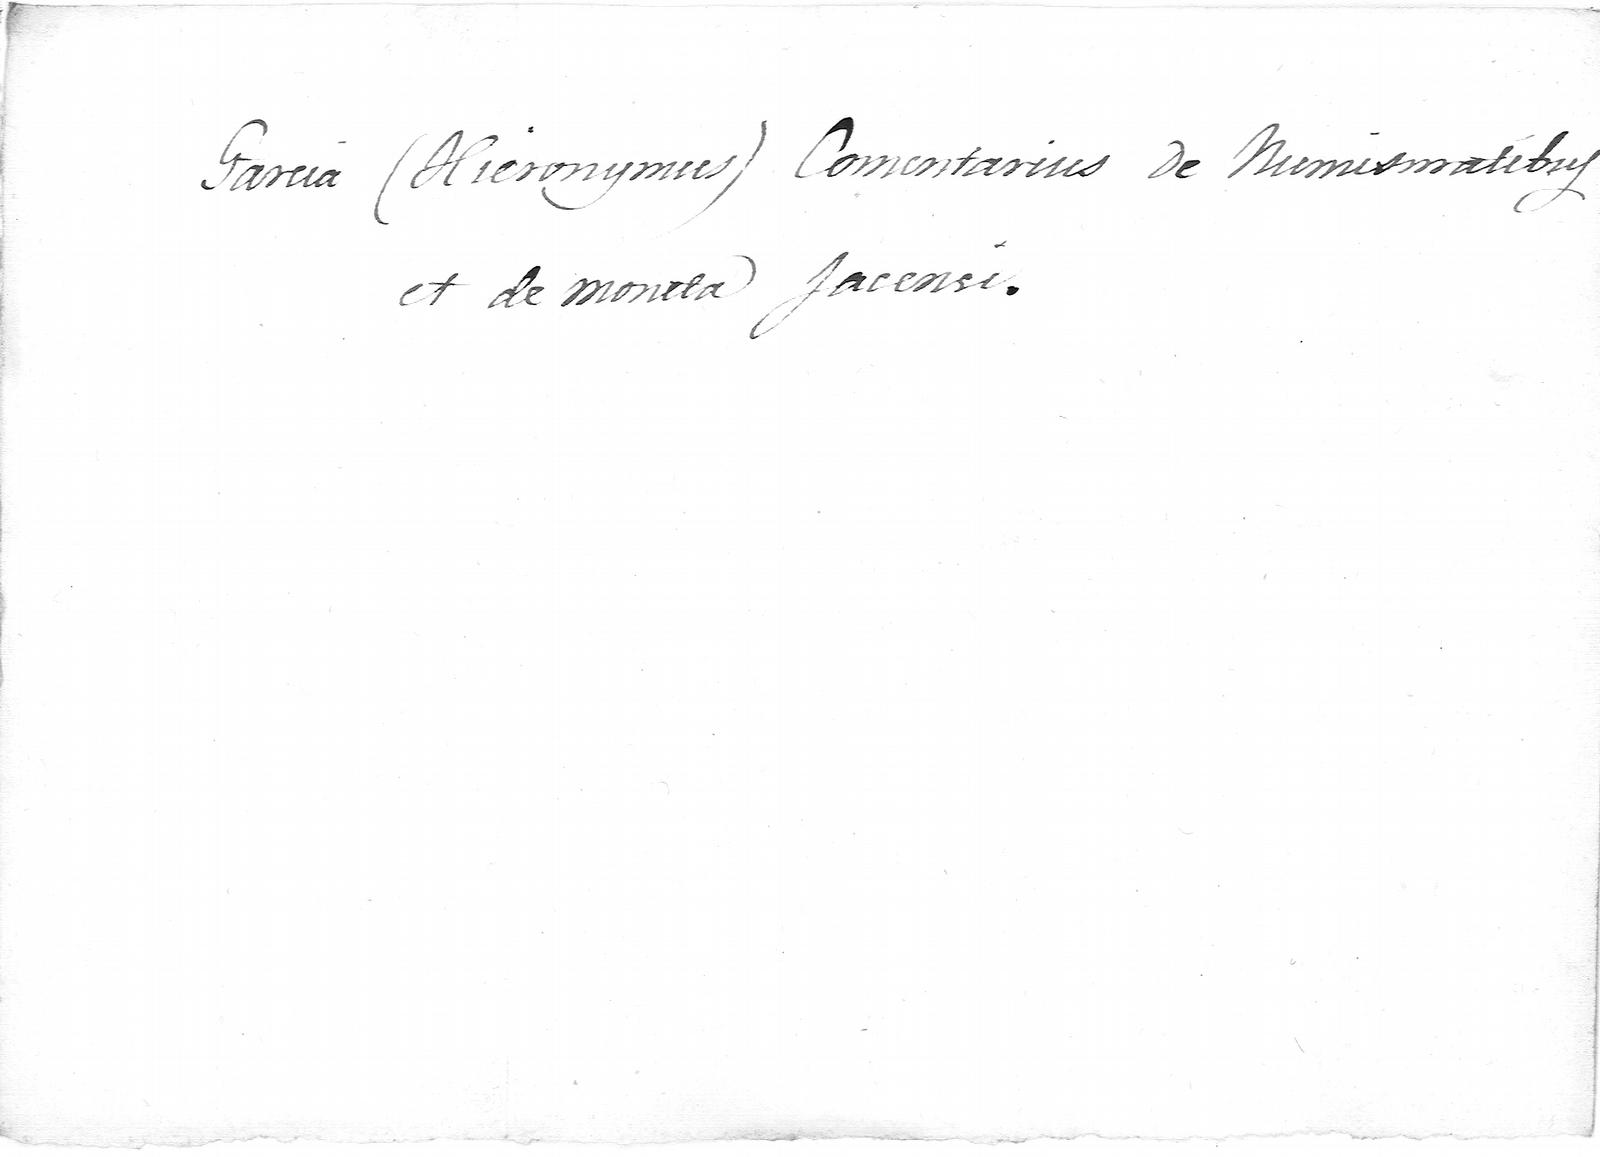 Garcia (Hieronymus) Comentarius de Numismatibus
et de moneta Jacensi.